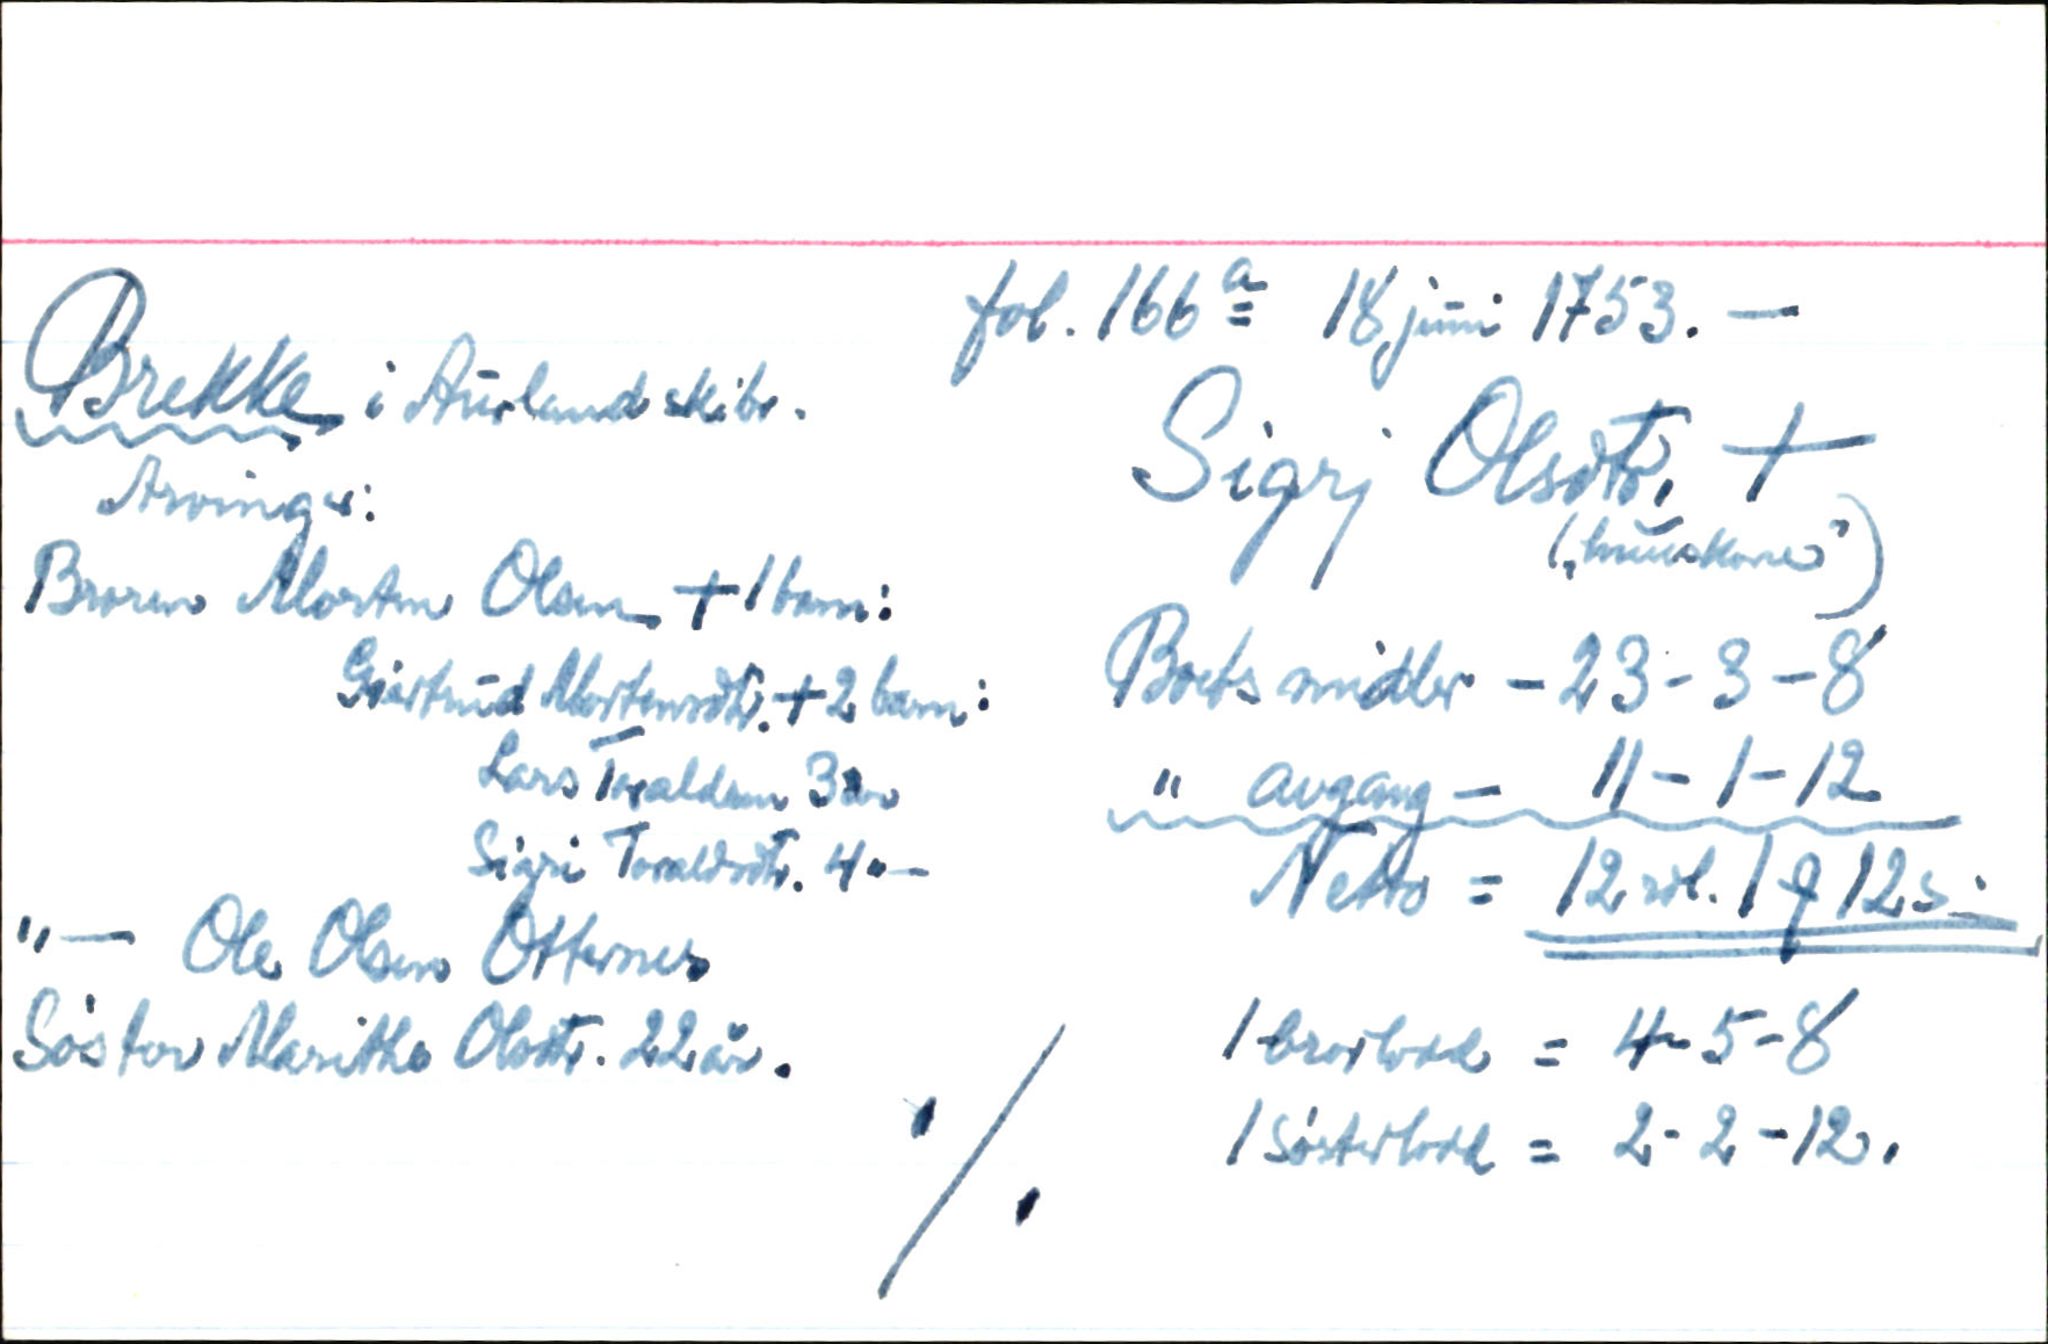 fol. 166 a 18 juni 1753. —
Brekke i Aurland skibr.
Sigrj Olsdtr. +
("huuskone")
Arvinger:
Broren Morten Olsen + 1 barn:
Giertrud Mortensdtr. + 2 barn:
Lars Toraldsen 3 år
Sigri Toraldsdtr. 4 " —
" — Ole Olsen Otternes
Søster Marithe Olsdtr. 22 år.
Boets midler - 23 - 3 - 8
" avgang - 11 - 1 - 12
Netto = 12 rdl. 1 ƒ 12 s.
1 brorlodd = 4 - 5 - 8
1 søsterlodd = 2 - 2 - 12.
./.